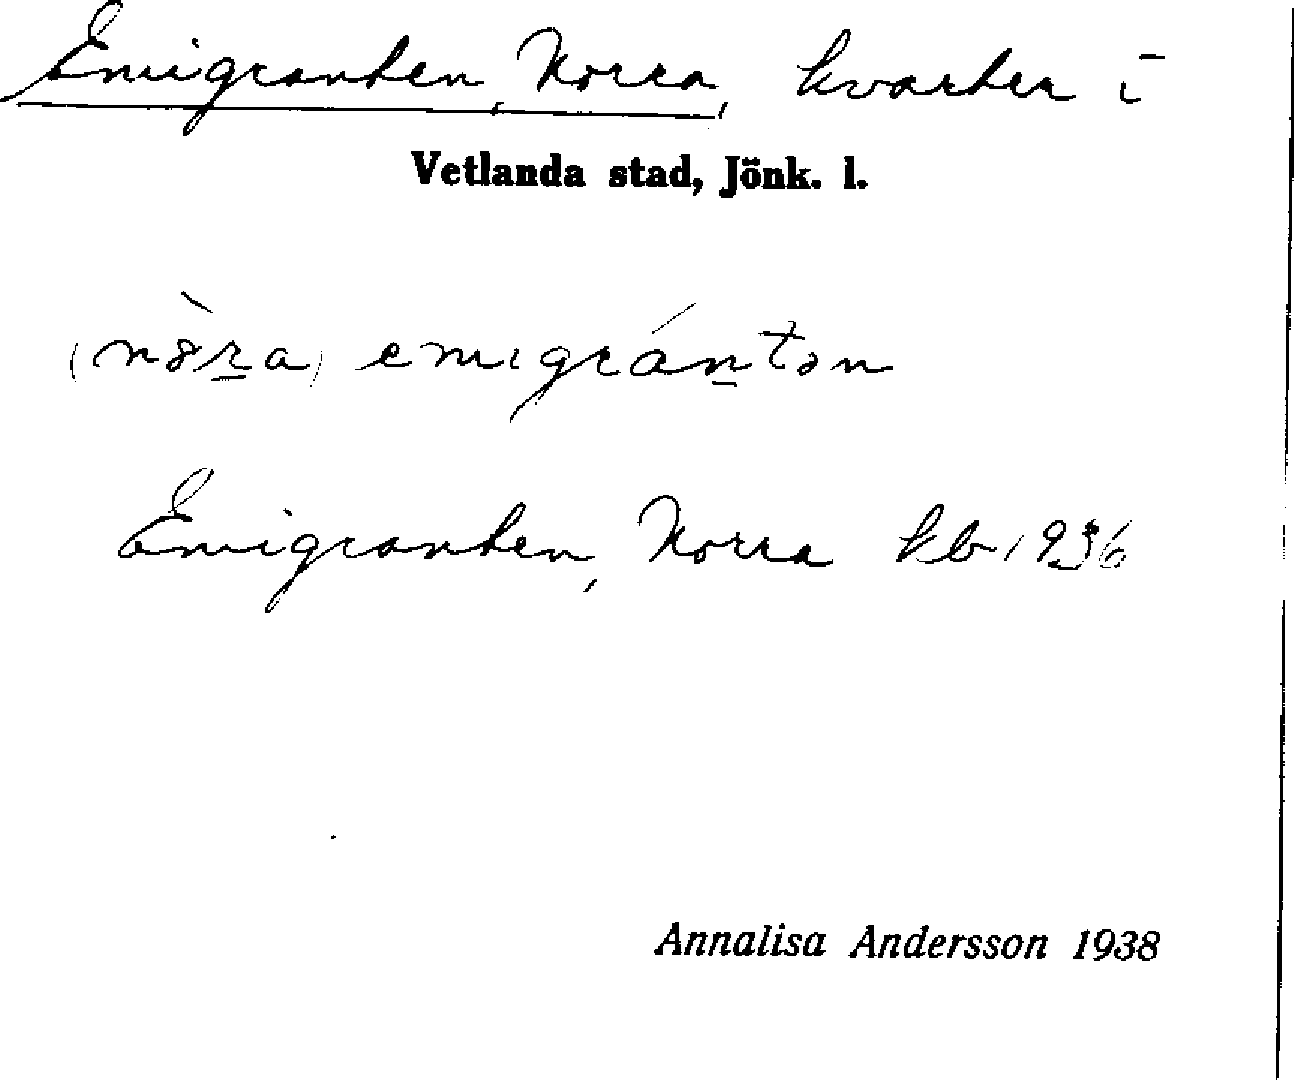 Emigranten, Norra, kvarter i
Vetlanda stad, Jönk. l.
(nòra) emigrántən
Emigranten, Norra kb 1936
Annalisa Andersson 1938